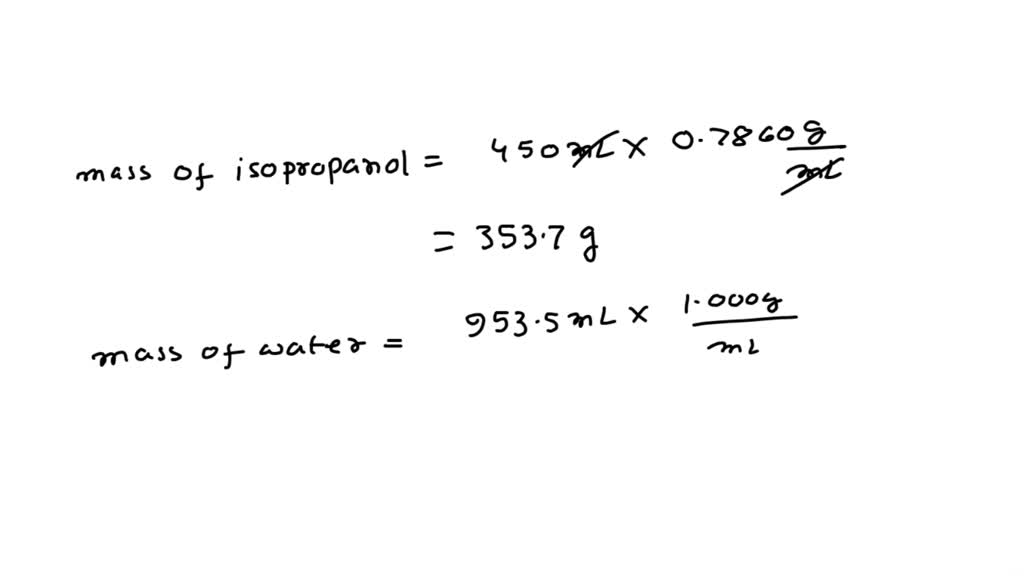 mass of isopropanol = 450 mL x 0.7860 g/mL
= 353.7 g
mass of water = 953.5 mL x 1.000g/mL